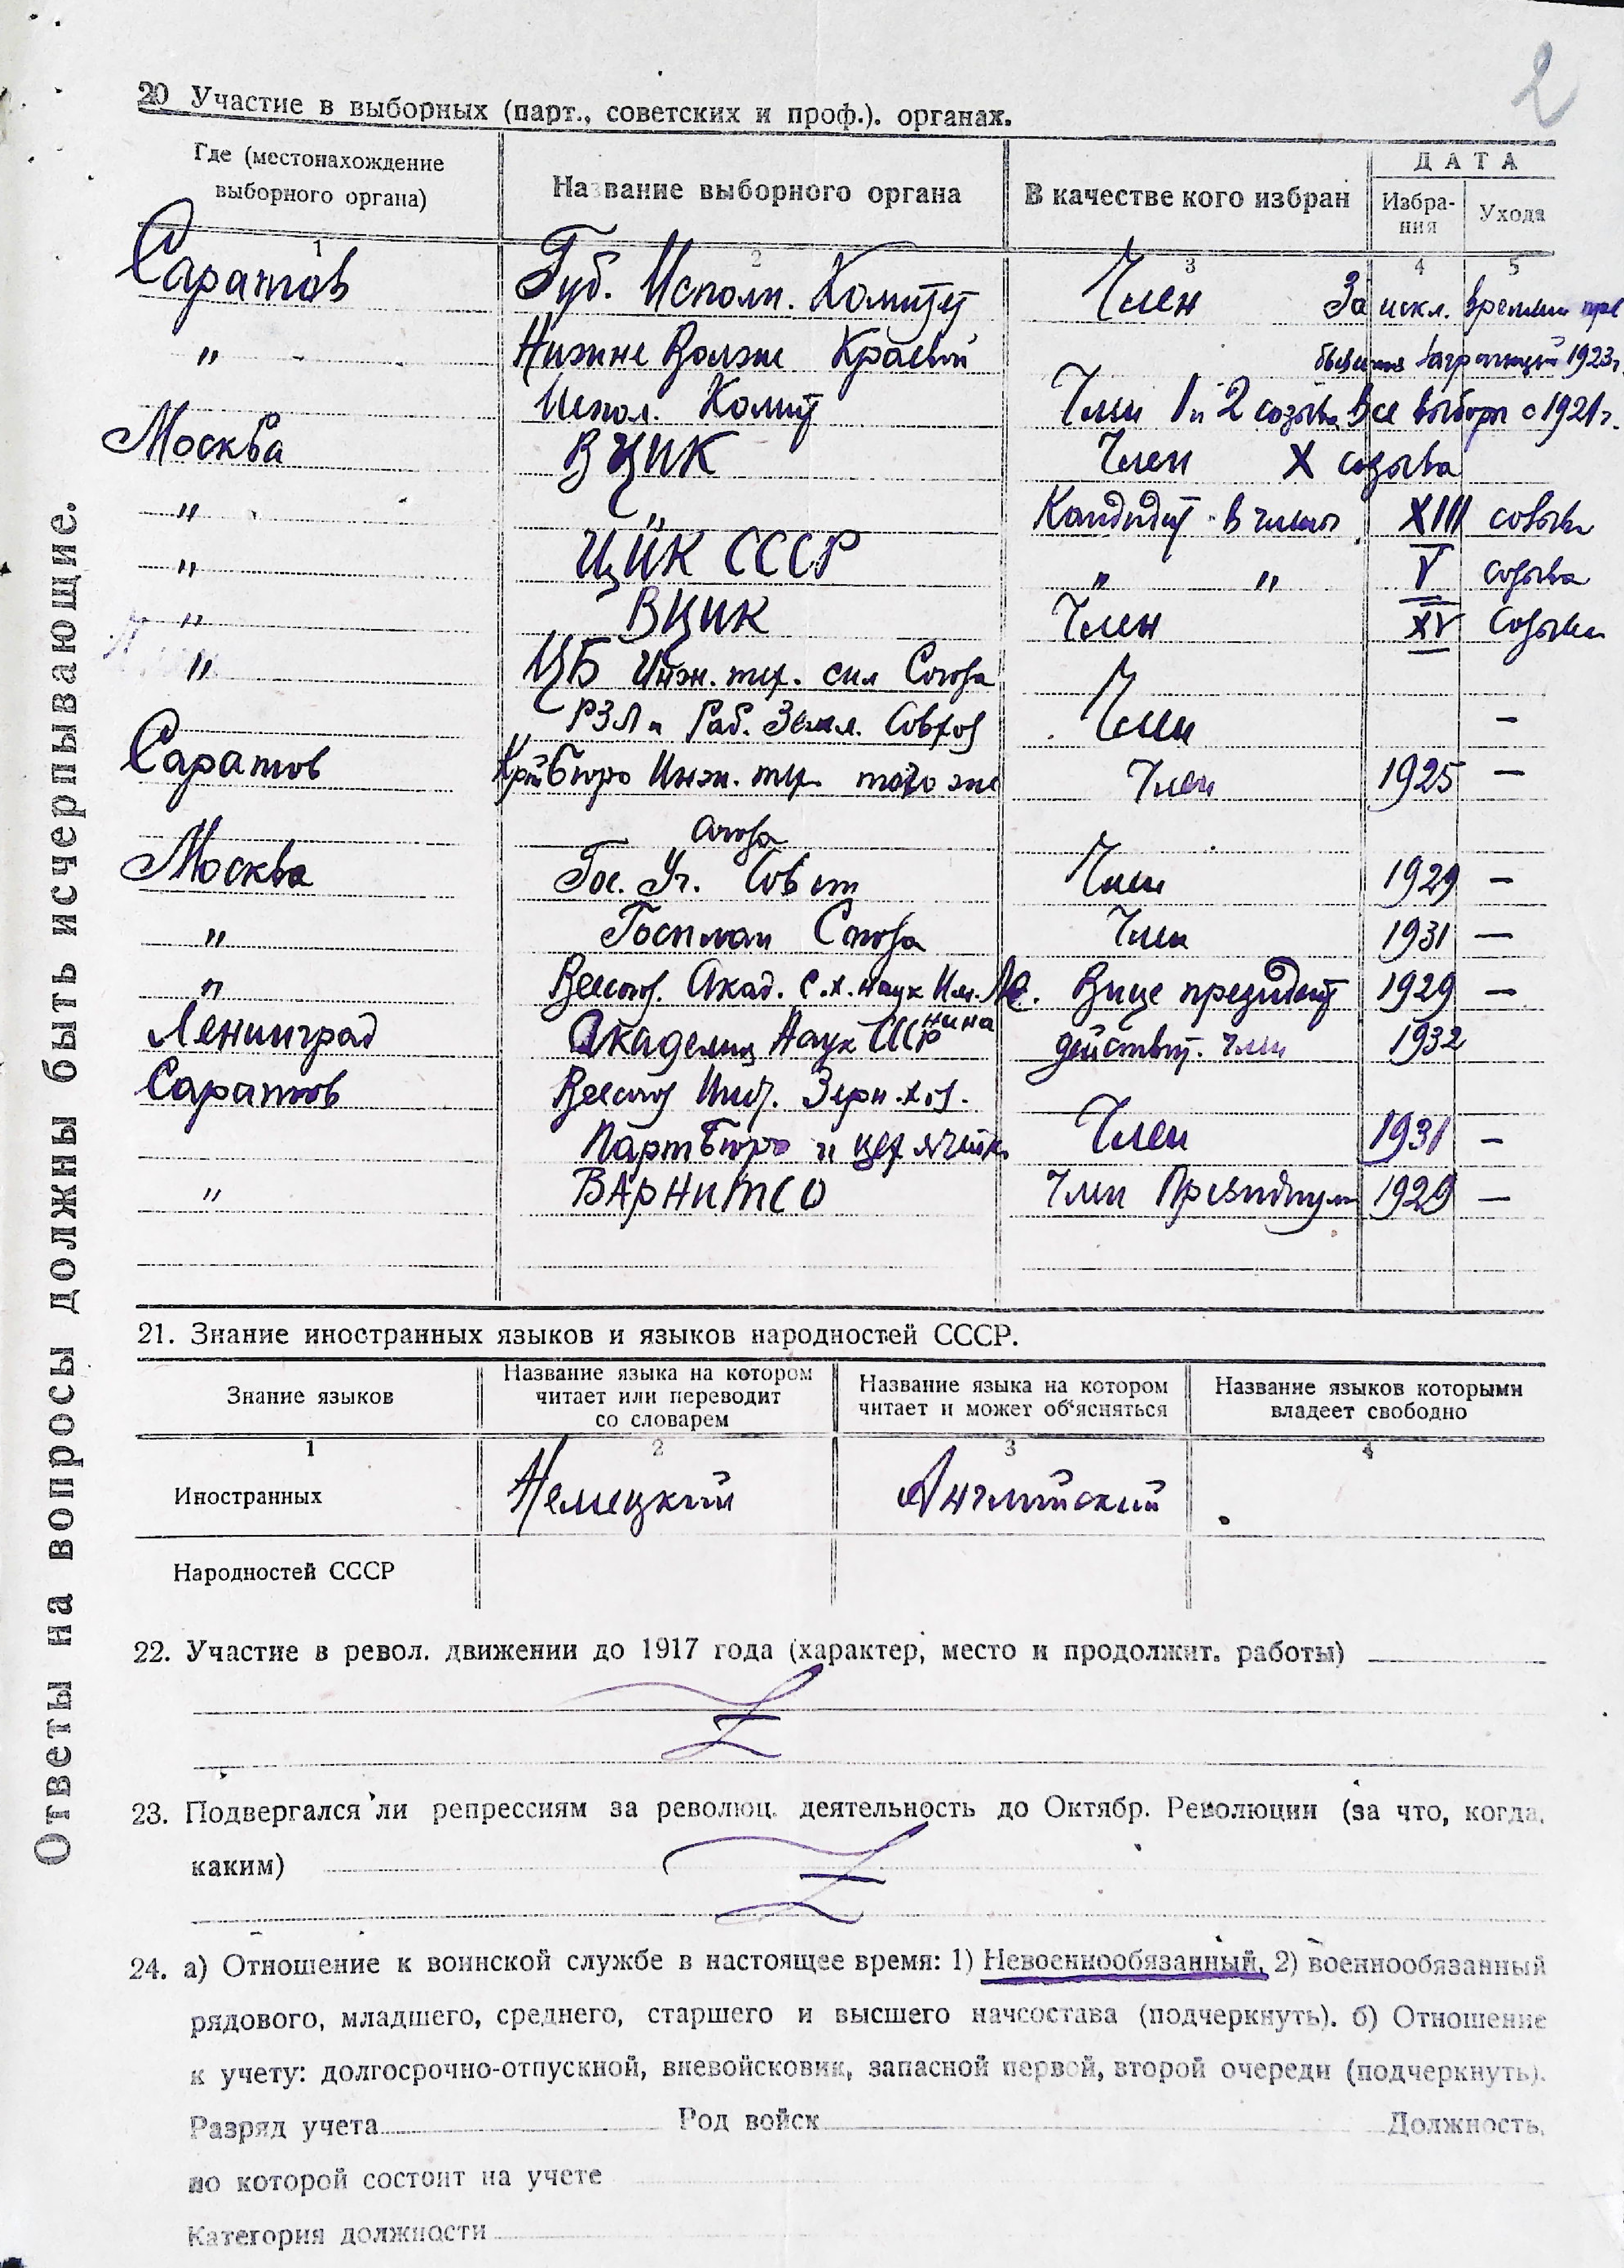 2
20 Участие в выборных (парт., советских и проф.). органах.
Где (местонахождение выборного органа) Название выборного органа В качестве кого избран ДАТА
Избрания Ухода
1 2 3 4 5
Саратов Губ. Исполн. Комитет Член За искл. времени пре
" Нижне Волжс Краевой бывания заграницей 1923г.
Испол. Комит Член 1 и 2 созыва Все выборы с 1921г.
Москва ВЦИК Член X созыва
" " Кандидат в члены XIII созыва
" ЦИК СССР " " V созыва
" ВЦИК Член XV Созыва
" ЦБ Инж. тех. сил Союза
РЗЛи Раб. Земл. Совхоз Член —
Саратов Бюро Инж. тех. того же Член 1925 —
Союза
Москва Гос. Уч. Совет Член 1929 —
" Госплан Союза Член 1931 —
" Всесоюз. Акад. с.х. наук Им. Ле. Вице президент 1929 —
нина
Ленинград Академия Наук СССР действит. член 1932
Саратов Всесоюз Инст. Зерн. хоз.
Партбюро и цех ячейк Член 1931 —
" ВАРНИТСО Член Президиума 1929 —
21. Знание иностранных языков и языков народностей СССР.
Знание языков Название языка на котором читает или переводит со словарем Название языка на котором читает и может об‘ясняться Название языков которыми владеет свободно
1 2 3 4
Иностранных Немецкий Английский
Народностей СССР
22. Участие в револ. движении до 1917 года (характер, место и продолжит. работы)
23. Подвергался ли репрессиям за революц. деятельность до Октябр. Революции (за что, когда,
каким)
24. а) Отношение к воинской службе в настоящее время: 1) Невоеннообязанный, 2) военнообязанный
рядового, младшего, среднего, старшего и высшего начсостава (подчеркнуть). б) Отношение
к учету: долгосрочно-отпускной, вневойсковик, запасной первой, второй очереди (подчеркнуть).
Разряд учета Род войск Должность,
по которой состоит на учете
Категория должности
Ответы на вопросы должны быть исчерпывающие.